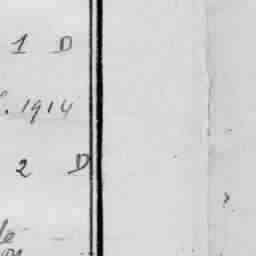 1 D
. 1914
2 D